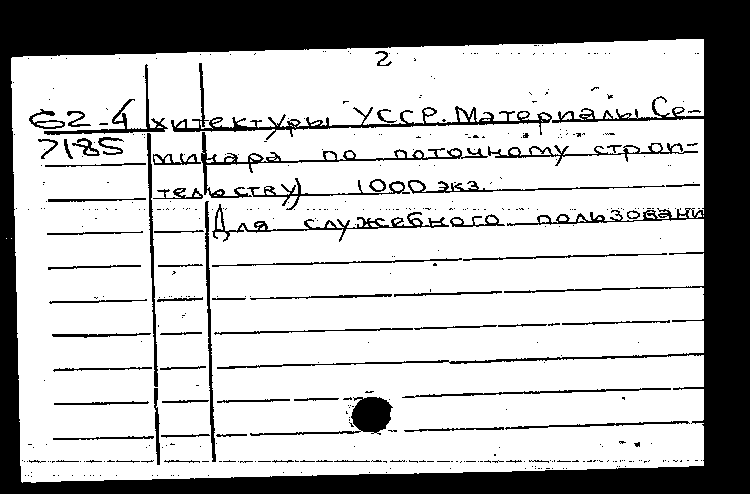 2
62-4 хитектуры УССР. Материалы Се-
7185 минара по поточному строи-
тельству). 1000 экз.
Для служебного пользовани